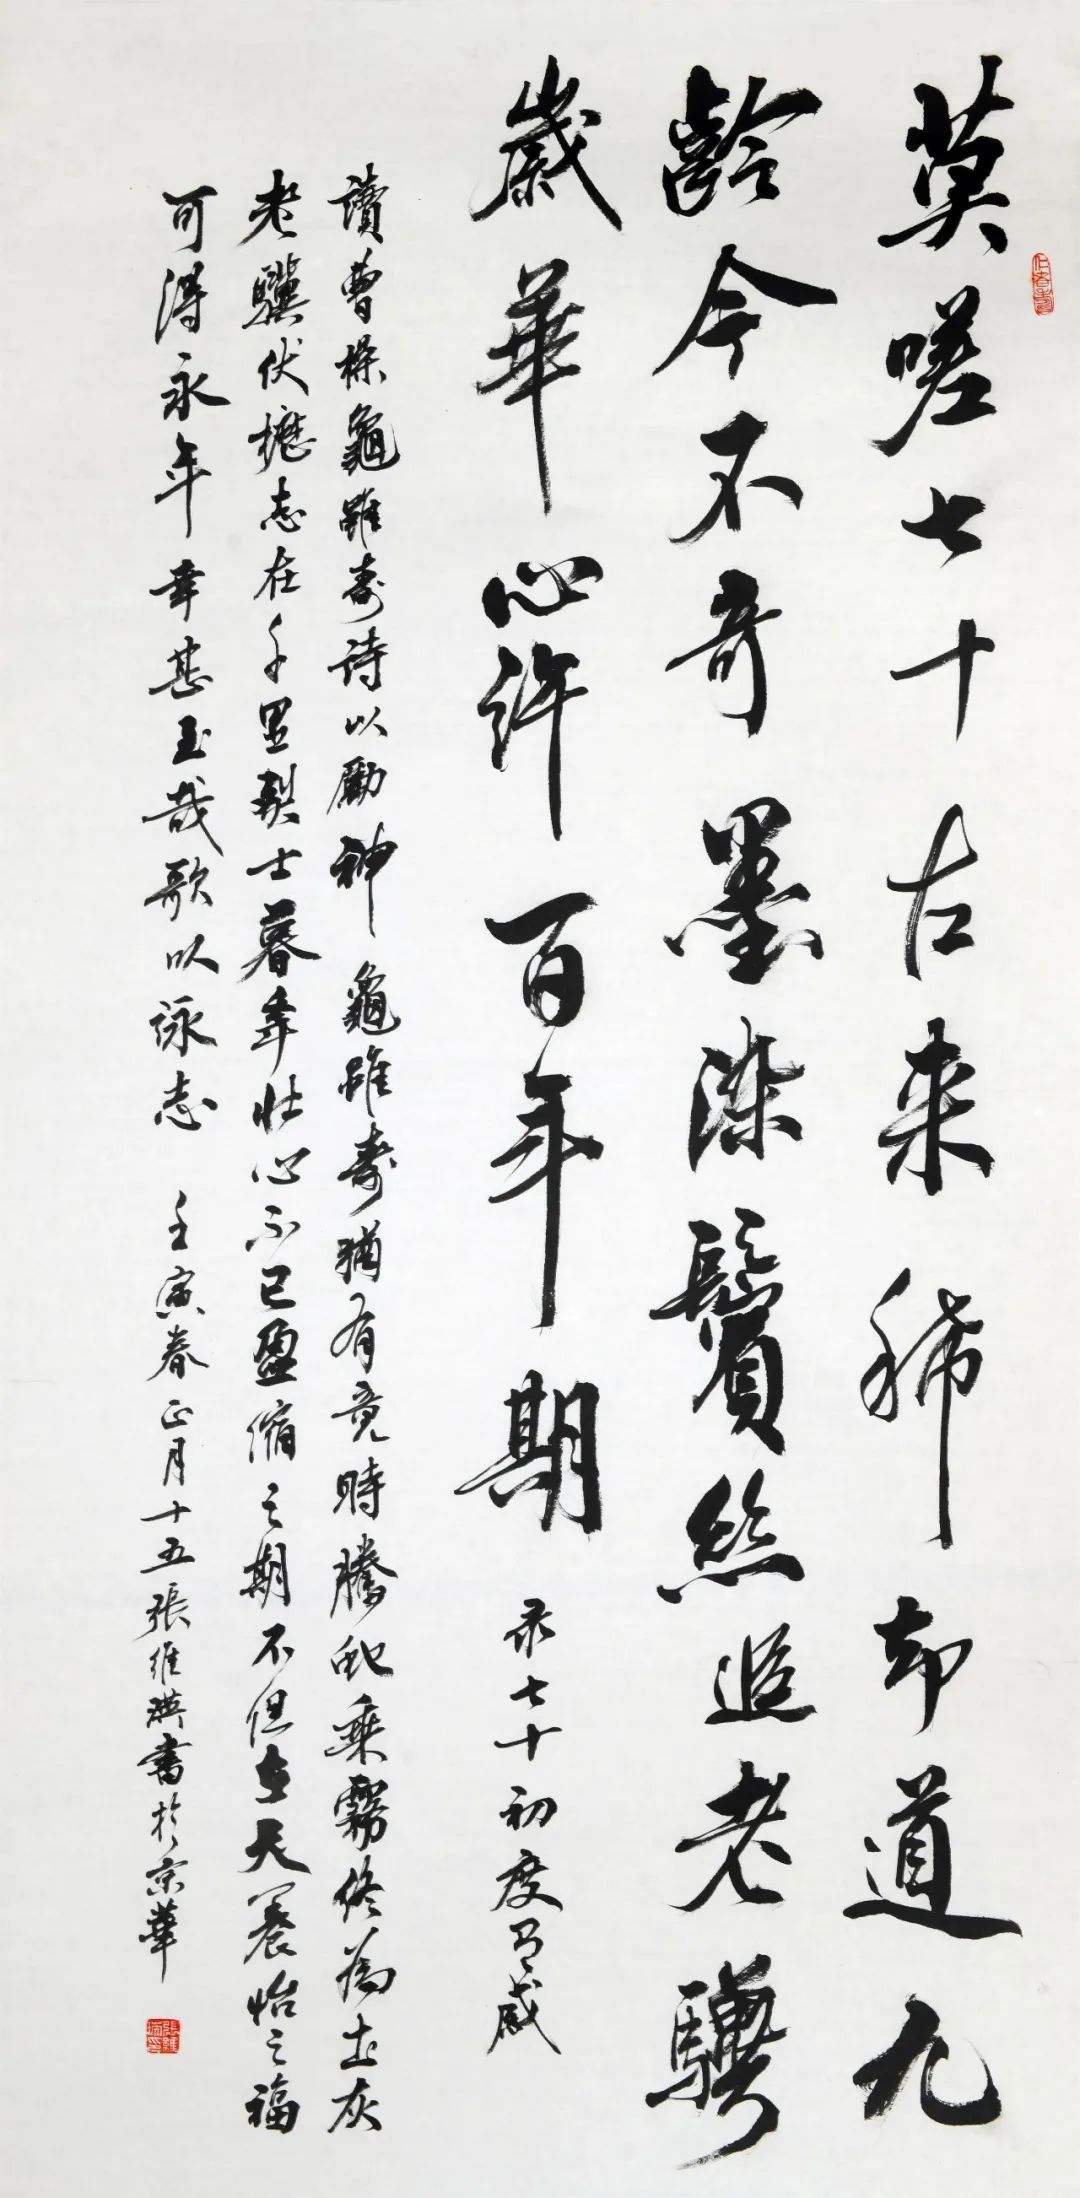 莫嗟七十古来稀却道九
齡今不奇墨染鬢絲追老驥
歲華心許百年期 录七十初度有感
讀曹操龜雖壽詩以勵 神龜雖壽猶有竟時騰蛇乘霧終為土灰
老驥伏櫪志在千里烈士暮年壯心不已盈縮之期不但在天養怡之福
可得永年幸甚至哉歌以詠志 壬寅春正月十五張維瑛書於京華